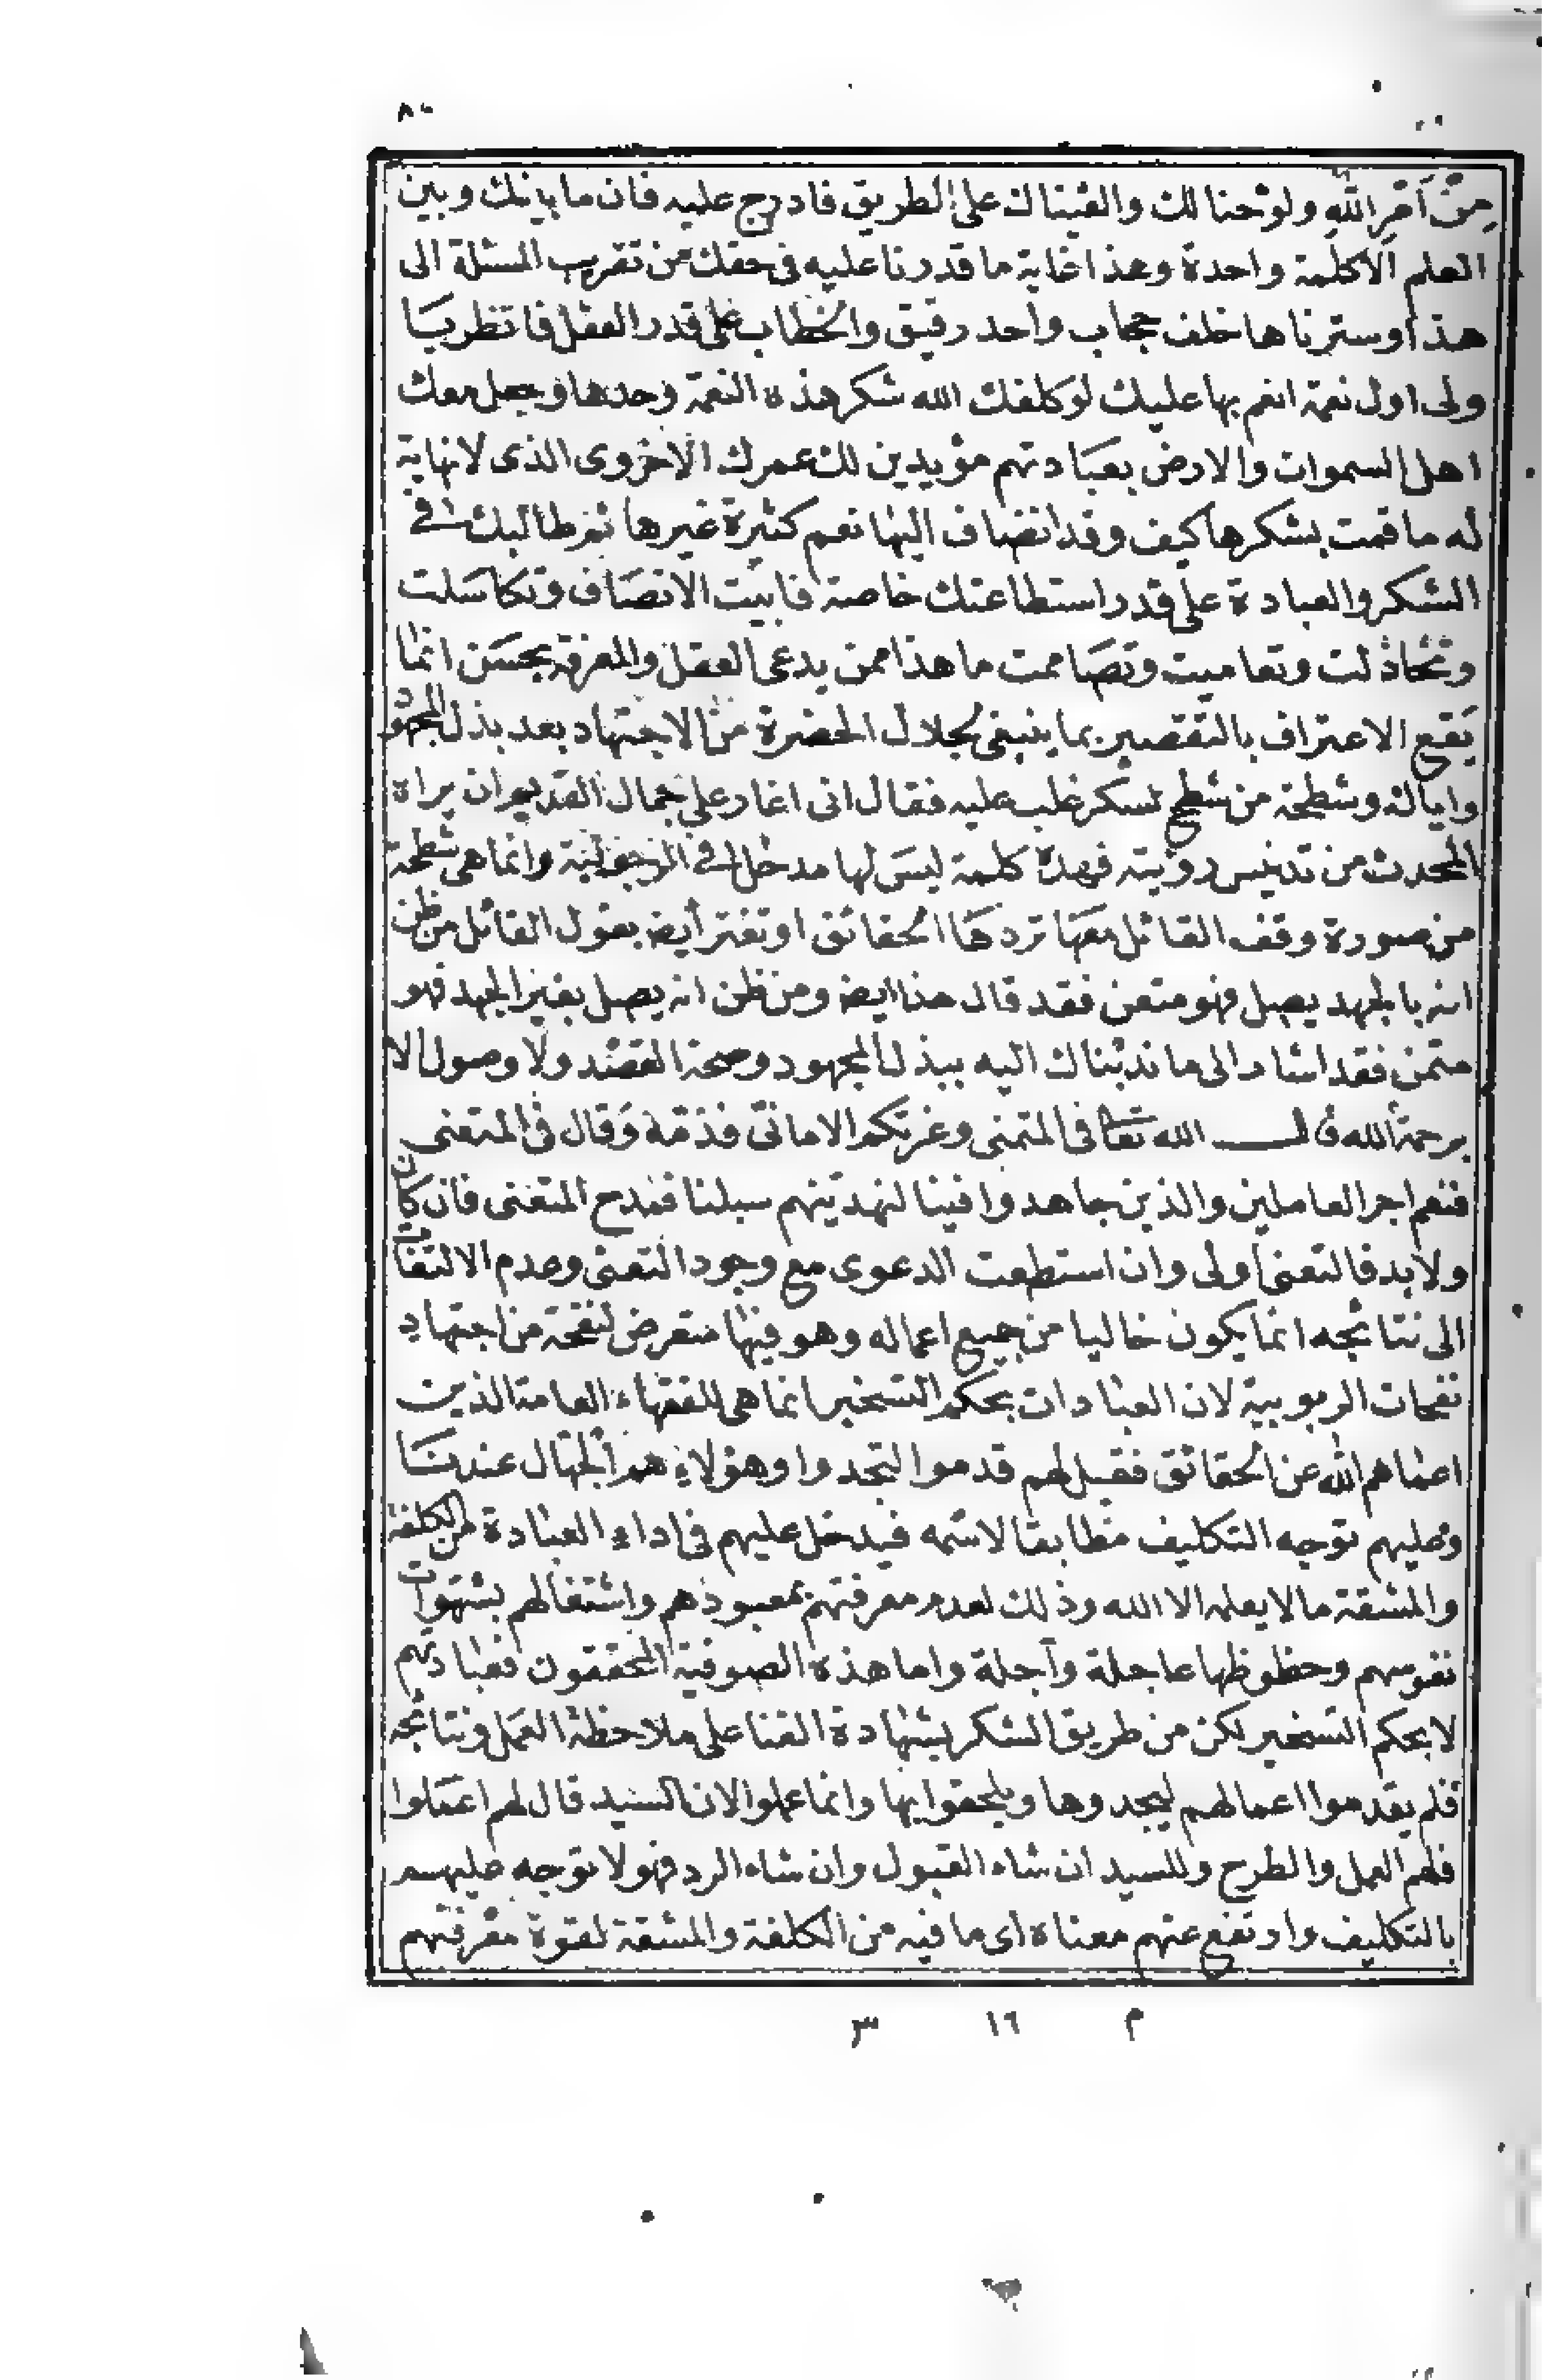 ٨٠
من امر الله ولوّحنا لك والقيناك على الطريق فادرج عليه فان ما بينك وبين
العلم الا كلمة واحدة وهذا غاية ما قدرنا عليه فى حقك من تقريب المسئلة الى
هذا وسترناها خلف حجاب واحد رقيق والخطاب على قدر العقل فانظر يا
ولى اول نعمة انعم بها عليك لو كلفك الله شكر هذه النعمة وحدها وجعل معك
اهل السموات والارض بعبادتهم مؤيدين لك عمرك الاخروى الذى لا نهاية
له ما قمت بشكرها كيف وقد انضاف اليها نعم كثيرة غيرها ثم طالبك فى
الشكر والعبادة على قدر استطاعتك خاصة فابيت الانصاف وتكاسلت
وتخاذلت وتعاميت وتصاممت ما هذا ممن يدعى العقل والمعرفة بحسن انما
يقع الاعتراف بالتقصير بما ينبغى لجلال الحضرة من الاجتهاد بعد بذل المجهود
واياك وشطحة من شطح لسكر غلب عليه فقال انى اغار على جمال القديم ان يراه
المحدث من تدنيس رؤيته فهذه كلمة ليس لها مدخل فى الرجولية وانما هى شطحة
من صورة وقف القائل معها تردها الحقائق او تغتر ايض بقول القائل من ظن
انه بالجهد يصل فهو متعن فقد قال هذا ايض ومن ظن انه يصل بغير الجهد فهو
متمن فقد اشار الى ما ندبناك اليه ببذل المجهود وصحة القصد ولا وصول الا
برحمة الله قال الله تعالى فى المتمنى وغرتكم الامانى فذمه وقال فى المتعنى
فنعم اجر العاملين والذين جاهدوا فينا لنهدينهم سبلنا فمدح المتعنى فان كان
ولا بد فالتعنى اولى وان استطعت الدعوى مع وجود التعنى وعدم الالتفات
الى نتائجه انما يكون خاليا من جميع اعماله وهو فيها متعرض لنفحة من اجتهاد
نفحات الربوبية لان العبادات بحكم التسخير انما هى للفقهاء العامة الذين
اعماهم الله عن الحقائق فقيل لهم قدموا لتجدوا وهؤلاء هم الجهال عندنا
وعليهم توجه التكليف مطابقا لاسمه فيدخل عليهم فى اداء العبادة من الكلفة
والمشقة ما لا يعلمه الا الله وذلك لعدم معرفتهم بمعبودهم واشتغالهم بشهوات
نفوسهم وحظوظها عاجلة وآجلة واما هذه الصوفية المحققون فعبادتهم
لا بحكم التسخير لكن من طريق الشكر بشهادة الفنا على ملاحظة العمل ونتائجه
فلم يقدموا اعمالهم ليجدوها ويلحقوا بها وانما عملوا لان السيد قال لهم اعملوا
فلهم العمل والطرح وللسيد ان شاء القبول وان شاء الرد فهولا توجه عليهم
بالتكليف وارتفع عنهم معناه اى ما فيه من الكلفة والمشقة لقوة معرفتهم
م ١٦ س